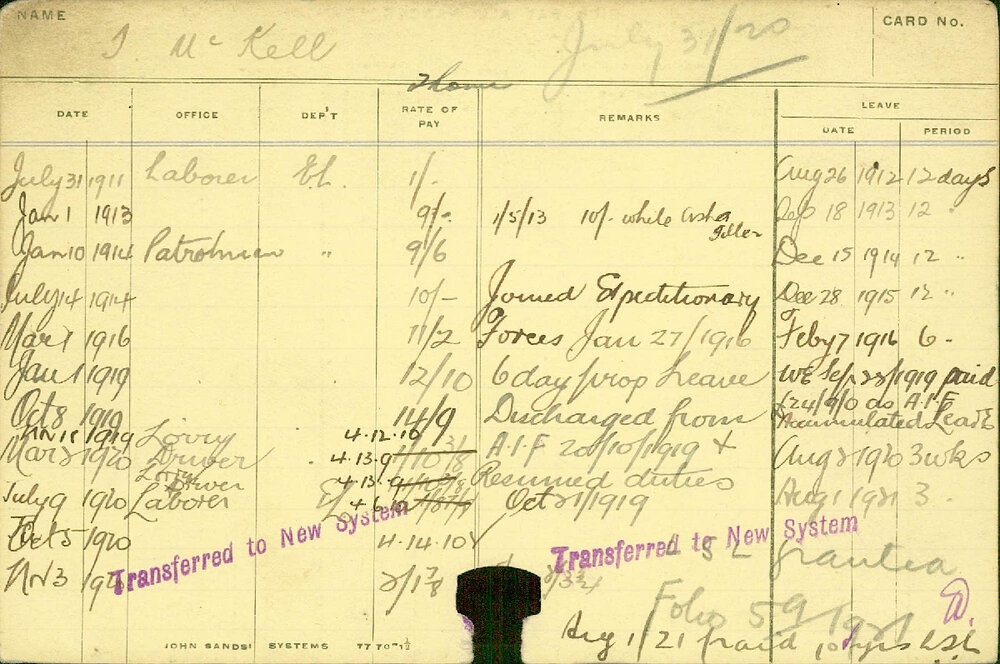 NAME
J McKell
July 31/20
CARD No.
DATE OFFICE DEP'T RATE OF PAY REMARKS LEAVE
DATE PERIOD
July 31 1911 Laborer EL. 1/- Aug 26 1912 12 days
Jan 1 1913 9/- 1/5/13 10/- while Sep 18 1913 12 "
Jan 10 1914 Patrolman " 9/6 Dec 15 1914 12 "
July 14 1914 10/- Joined Expeditionary Dec 28 1915 12 "
Mar 1 1916 11/2 Forces Jan 27/1916 Feby 7 1916 6 -
Jan 1 1919 12/10 6 day prop Leave WE Sep 23/1919 paid
£24/9/0 do A.I.F
Oct 8 1919 14/9 Discharged from Accumulated Leave
1919 Lorry 4.12.10
Mar 2 1920 Driver 4.13.9 A.I.F 20/10/1919 + Aug 2 1920 3 wks
Lorry Driver 4.13.9 Resumed duties
July 9 1920 Laborer EL 4.6.10 Oct 21/1919 Aug 1 1921 3 -
Oct 5 1920 4.14.10
Nov 3
Transferred to New System
Transferred to New System
L S L granted
Folio 59
Aug 1/21 paid 10 yrs LSL
JOHN SANDS' SYSTEMS